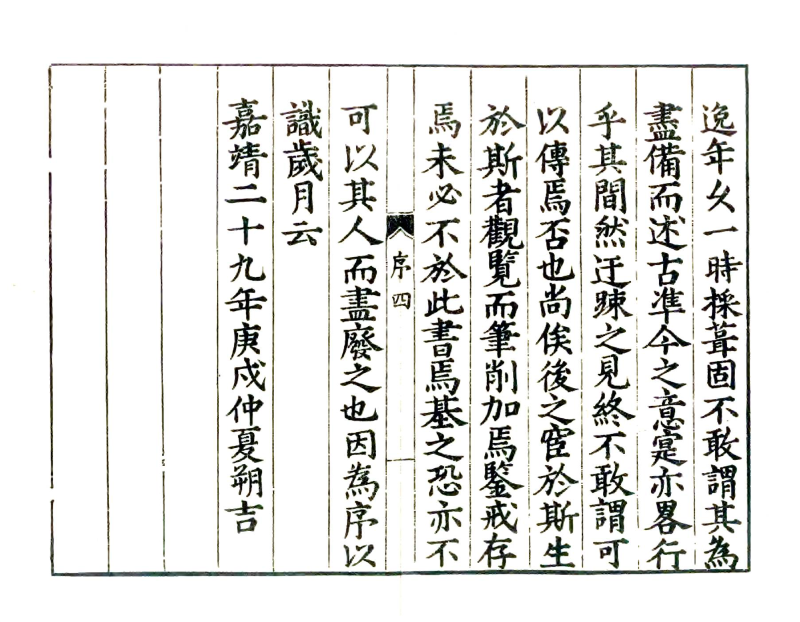 逸年久一時採葺固不敢謂其為
盡備而述古準今之意寔亦畧行
乎其間然迂踈之見終不敢謂可
以傳焉否也尚俟後之宦於斯生
於斯者觀覽而筆削加焉鑒戒存
焉未必不於此書焉基之恐亦不
序四
可以其人而盡廢之也因為序以
識歲月云
嘉靖二十九年庚戌仲夏朔吉